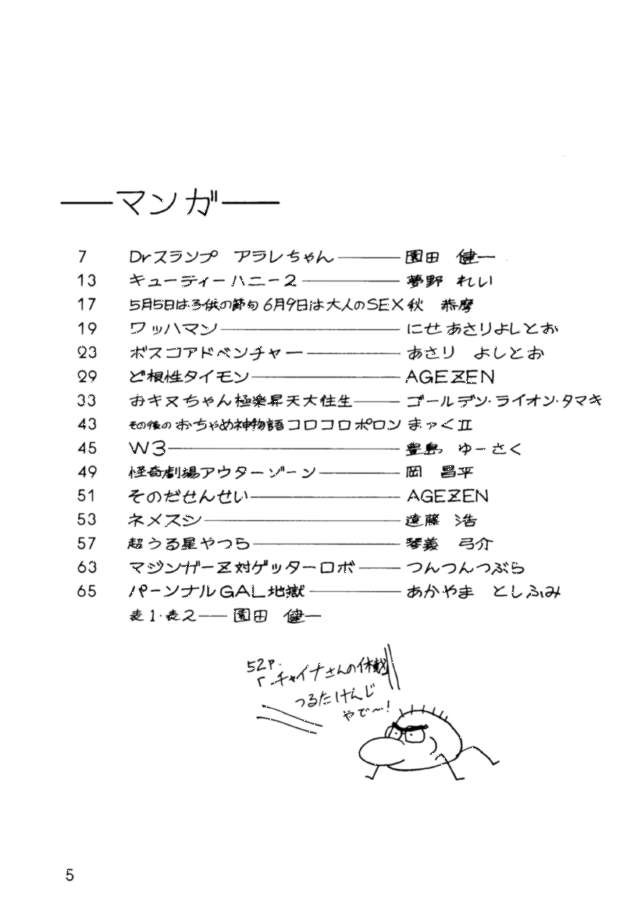 ——マンガ——
7 Drスランプ アラレちゃん——園田 健一
13 キューティーハニー2——夢野 れい
17 5月5日は子供の節句 6月9日は大人のSEX 秋 恭摩
19 ワッハマン——にせ あさりよしとお
23 ボスコアドベンチャー——あさり よしとお
29 ど根性タイモン——AGEZEN
33 おキヌちゃん極楽昇天大往生——ゴールデン・ライオン・タマキ
43 その後のおちゃめ神物語コロコロポロン まァくII
45 W3——豊島 ゆーさく
49 怪奇劇場アウターゾーン——岡 昌平
51 そのだせんせい——AGEZEN
53 ネメスシ——遠藤 浩
57 超うる星やつら——琴義 弓介
63 マジンガーZ対ゲッターロボ——つんつんつぶら
65 パーンナルGAL地獄——あかやま としふみ
表1・表2——園田 健一
52P.
「チャイナさんの休戦
つるたけんじ
やで〜!
5